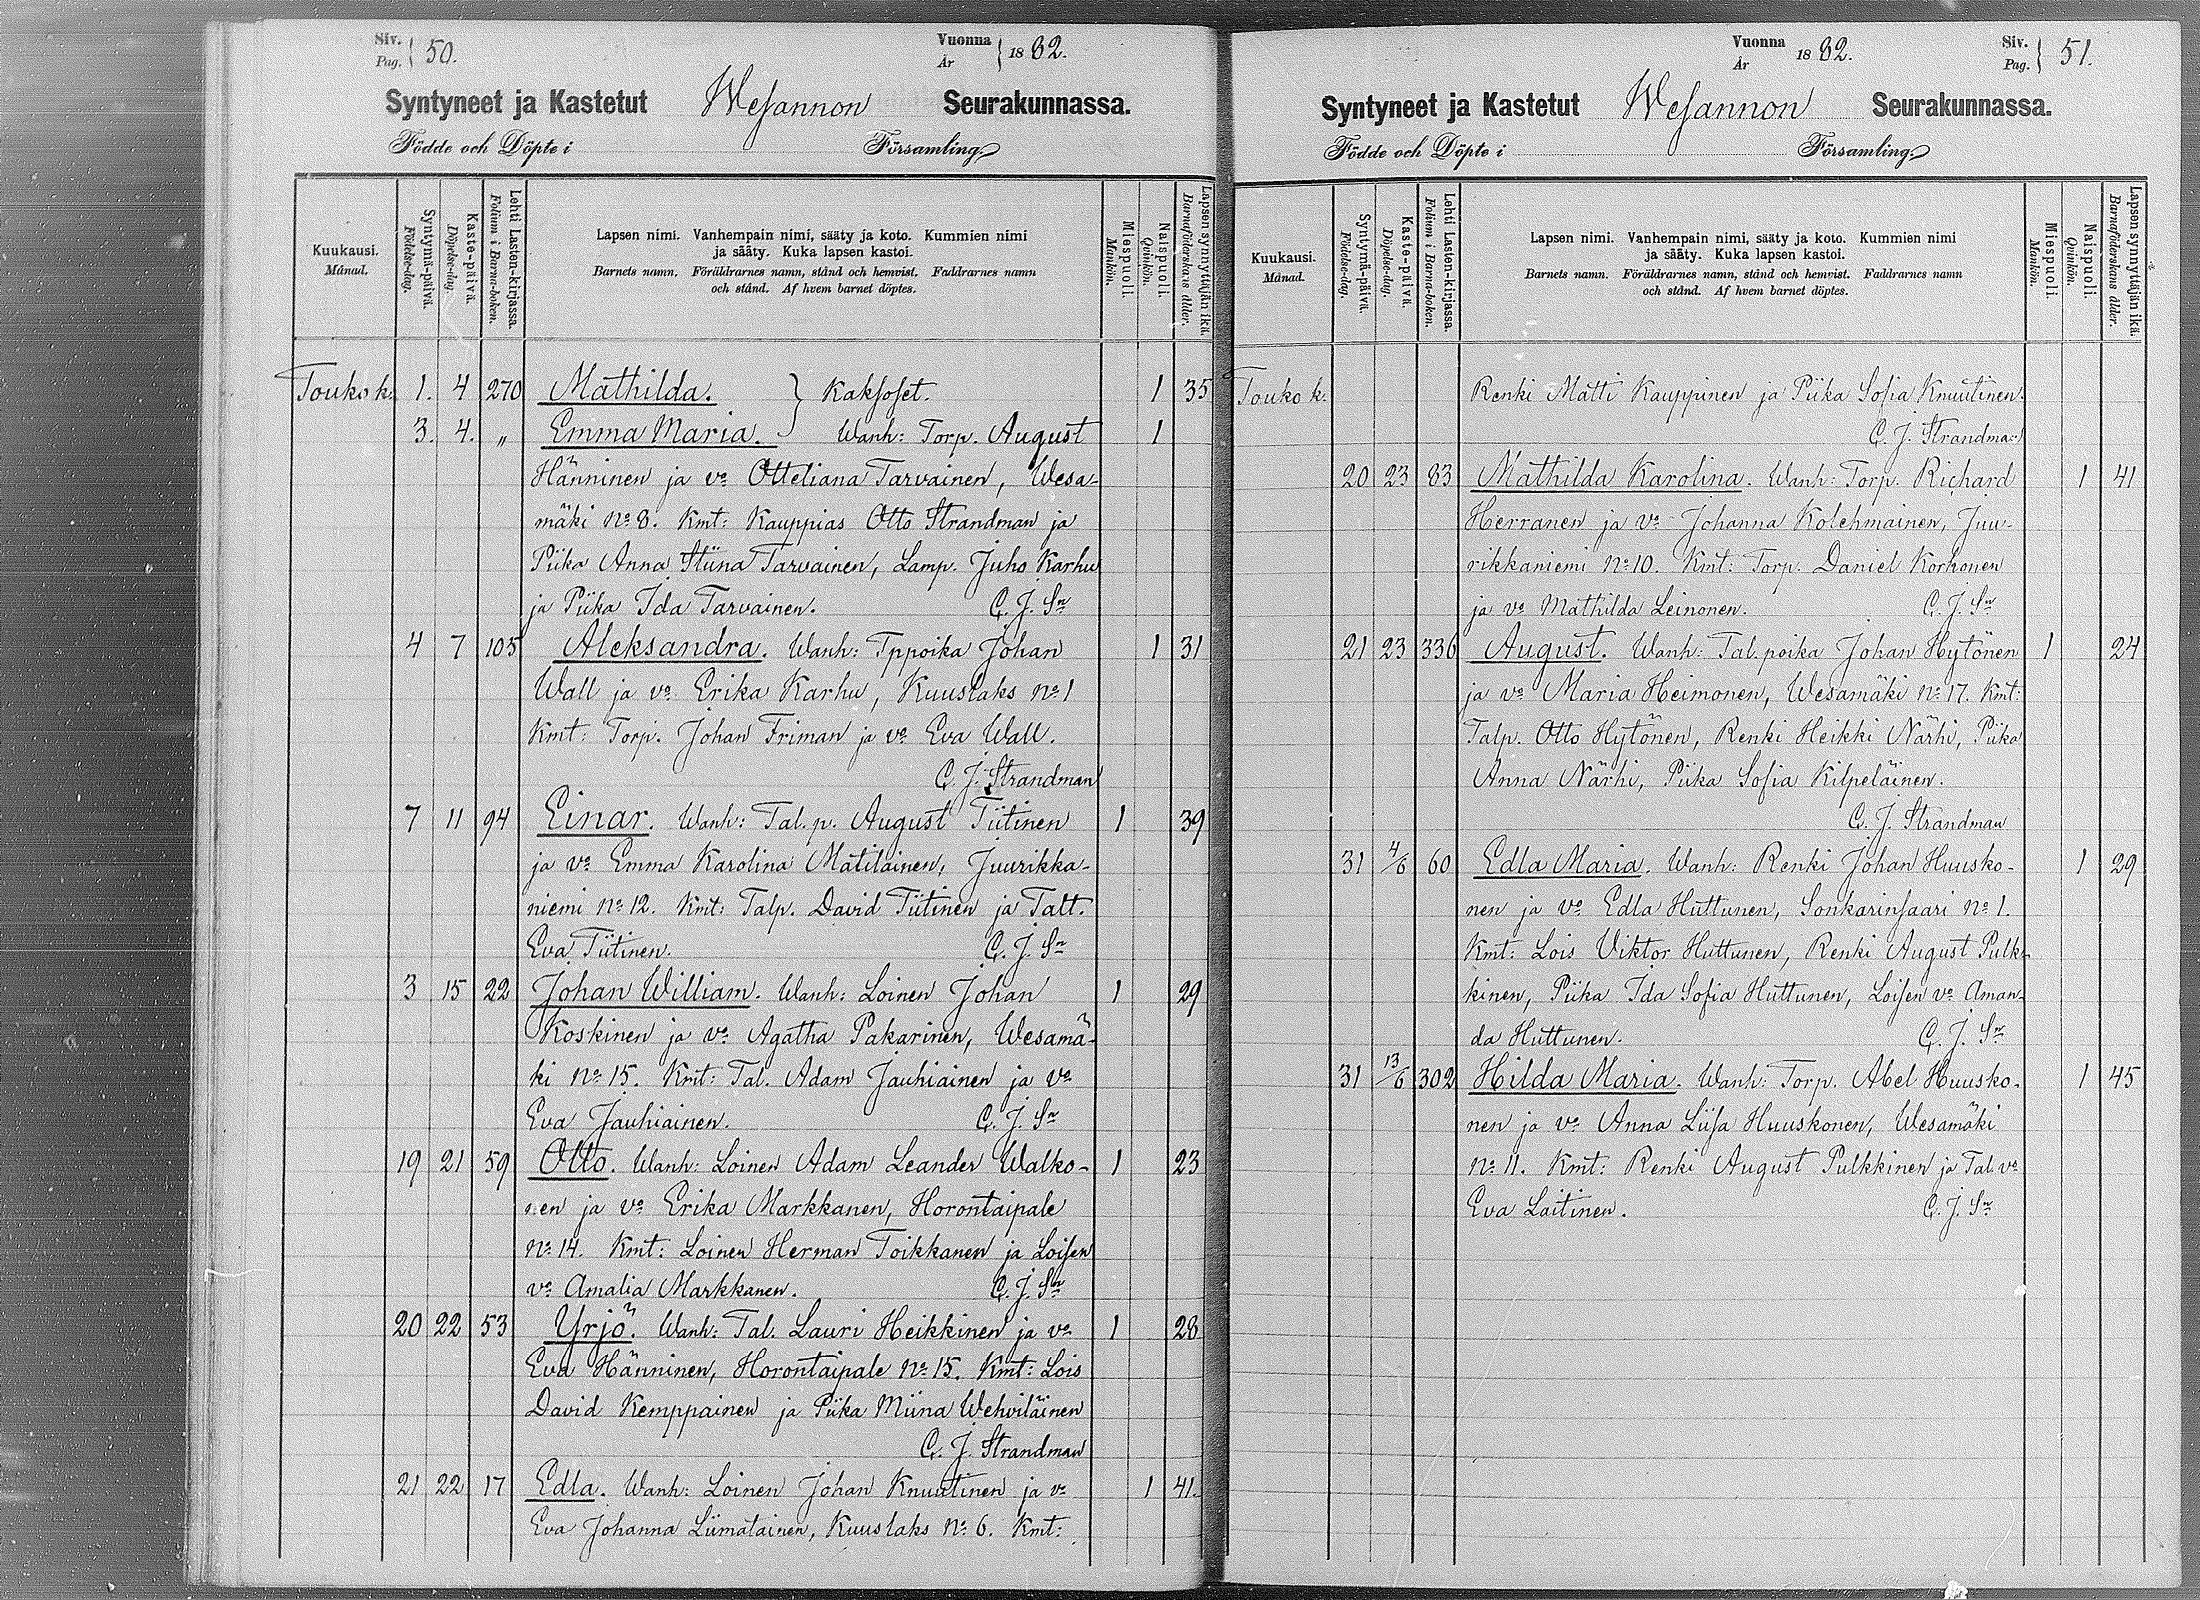 Siv.
Pag. } 50.
Vuonna
År } 1882.
Syntyneet ja Kastetut Wesannon Seurakunnassa.
Födde och Döpte i Församling.
Kuukausi.
Månad.
Syntymä-päivä.
Födelse-dag.
Kaste-päivä.
Döpelse-dag.
Lehti Lasten-kirjassa.
Folium i Barna-boken.
Lapsen nimi. Vanhempain nimi, sääty ja koto. Kummien nimi
ja sääty. Kuka lapsen kastoi.
Barnets namn. Föräldrarnes namn, stånd och hemvist. Faddrarnes namn
och stånd. Af hvem barnet döptes.
Miespuoli.
Mankön.
Naispuoli.
Qvinkön.
Lapsensynnyttäjän ikä.
Barnaföderskas ålder.
Touko k. 1. 4 270 Mathilda. } Kaksoset. 1 35
3. 4. „ Emma Maria. } Wanh: Torp. August 1
Hänninen ja vo Otteliana Tarvainen, Wesa-
mäki No 8. Kmt: Kauppias Otto Strandman ja
Piika Anna Stiina Tarvainen, Lamp. Juho Karhu
ja Piika Ida Tarvainen. C. J. Sn
4 7 105 Aleksandra. Wanh: Tppoika Johan 1 31
Wall ja vo Erika Karhu, Kuuslaks No 1
Kmt: Torp. Johan Friman ja vo Eva Wall.
C. J. Strandman
7 11 94 Einar. Wanh: Tal. p. August Tiitinen 1 39
ja vo Emma Karolina Matilainen, Juurikka-
niemi No 12. Kmt: Talp. David Tiitinen ja Talt.
Eva Tiitinen. C. J. Sn
3 15 22 Johan William. Wanh: Loinen Johan 1 29
Koskinen ja vo Agatha Pakarinen, Wesamä-
ki No 15. Kmt: Tal. Adam Jauhiainen ja vo
Eva Jauhiainen. C. J. Sn
19 21 59 Otto. Wanh: Loinen Adam Leander Walko- 1 23
nen ja vo Erika Markkanen, Horontaipale
No 14. Kmt: Loinen Herman Toikkanen ja Loisen
vo Amalia Markkanen. C. J. Sn
20 22 53 Yrjö. Wanh: Tal. Lauri Heikkinen ja vo 1 28
Eva Hänninen, Horontaipale No 15. Kmt: Lois
David Kemppainen ja Piika Miina Wehviläinen
C. J. Strandman
21 22 17 Edla. Wanh: Loinen Johan Knuutinen ja vo 1 41.
Eva Johanna Liimatainen, Kuuslaks No 6. Kmt:
Vuonna
År 1882.
Siv.
Pag. } 51.
Syntyneet ja Kastetut Wesannon Seurakunnassa.
Födde och Döpte i Församling.
Kuukausi.
Månad.
Syntymä-päivä.
Födelse-dag.
Kaste-päivä.
Döpelse-dag.
Lehti Lasten-kirjassa.
Folium i Barna-boken.
Lapsen nimi. Vanhempain nimi, sääty ja koto. Kummien nimi
ja sääty. Kuka lapsen kastoi.
Barnets namn. Föräldrarnes namn, stånd och hemvist. Faddrarnes namn
och stånd. Af hvem barnet döptes.
Miespuoli.
Mankön.
Naispuoli.
Qvinkön.
Lapsensynnyttäjän ikä.
Barnaföderskans ålder.
Touko k. Renki Matti Kauppinen ja Piika Sofia Knuutinen.
C. J. Strandman
20 23 83 Mathilda Karolina. Wanh: Torp. Richard 1 41
Herranen ja vo Johanna Kolehmainen, Juu-
rikkaniemi No 10. Kmt: Torp. Daniel Korhonen
ja vo Mathilda Leinonen. C. J. Sn
21 23 336 August. Wanh: Tal. poika Johan Hytönen 1 24
ja vo Maria Heimonen, Wesamäki No 17. Kmt:
Talp. Otto Hytönen, Renki Heikki Närhi, Piika
Anna Närhi, Piika Sofia Kilpeläinen.
C. J. Strandman
31 4/6 60 Edla Maria. Wanh: Renki Johan Huusko- 1 29
nen ja vo Edla Huttunen, Sonkarinsaari No 1.
Kmt: Lois Viktor Huttunen, Renki August Pulk-
kinen, Piika Ida Sofia Huttunen, Loisen vo Aman-
da Huttunen. C. J. Sn
31 13/6 302 Hilda Maria. Wanh: Torp. Abel Huusko- 1 45
nen ja vo Anna Liisa Huuskonen, Wesamäki
No 11. Kmt: Renki August Pulkkinen ja Tal. vo
Eva Laitinen. C. J. Sn